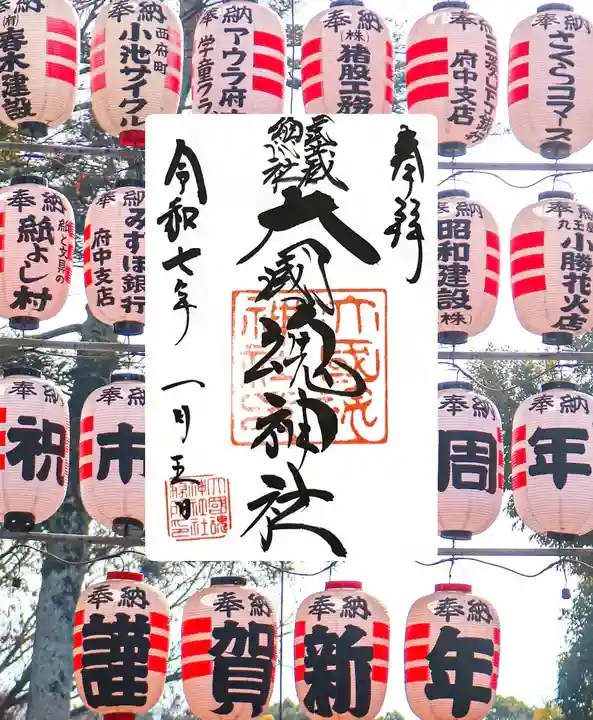 奉納
(有)春木建設
奉納
西府町
小池サイクル
奉納
アウラ府
学童クラブ
奉納
(株)猪股工務
奉納
府中支店
奉納
さくらコマース
奉納
紙と文具の
紙よし村
奉納
みずほ銀行
府中支店
奉納
昭和建設(株)
奉納
丸玉屋
小勝花火店
奉納
祝
奉納
市
奉納
周
奉納
年
奉納
謹
奉納
賀
奉納
新
奉納
年
奉拝
武蔵
総社
大國魂神社
令和七年 一月五日
大國魂
神社